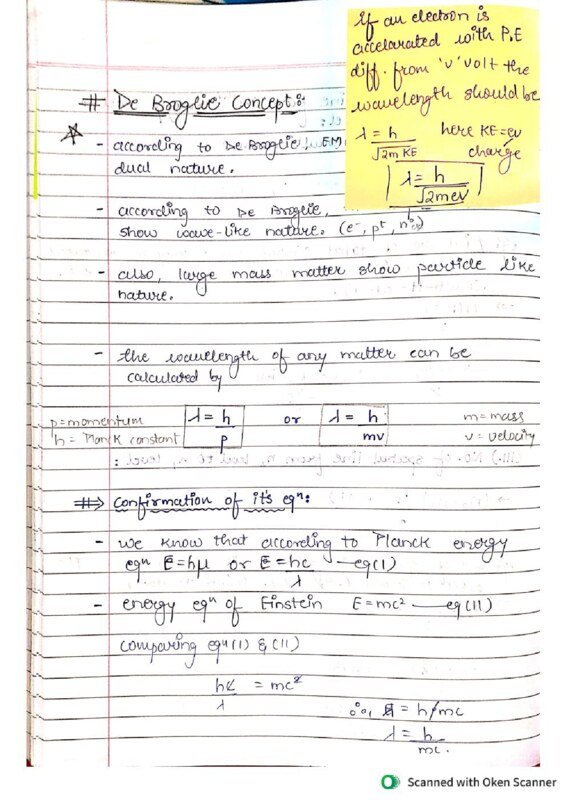 If an electron is
accelarated with P.E
diff. from 'v' volt the
wavelength should be
λ = h/√2m KE here KE = ev
charge
λ = h/√2meV
# De Broglie Concept:
- according to De-Broglie, EM
dual nature.
- according to De Broglie,
show wave-like nature. (e⁻, p⁺, n⁰)
- also, large mass matter show particle like
nature.
- the wavelength of any matter can be
calculated by
p = momentum λ = h/p or λ = h/mv m = mass
h = Planck constant v = velocity
#⇒ Confirmation of it's eqⁿ:
- we know that according to Planck energy
eqⁿ E = hμ or E = hc/λ — eq(I)
- energy eqⁿ of Einstein E = mc² — eq(II)
comparing eqⁿ(I) & (II)
hc/λ = mc²
∴ λ = h/mc
λ = h/mc.
Scanned with Oken Scanner